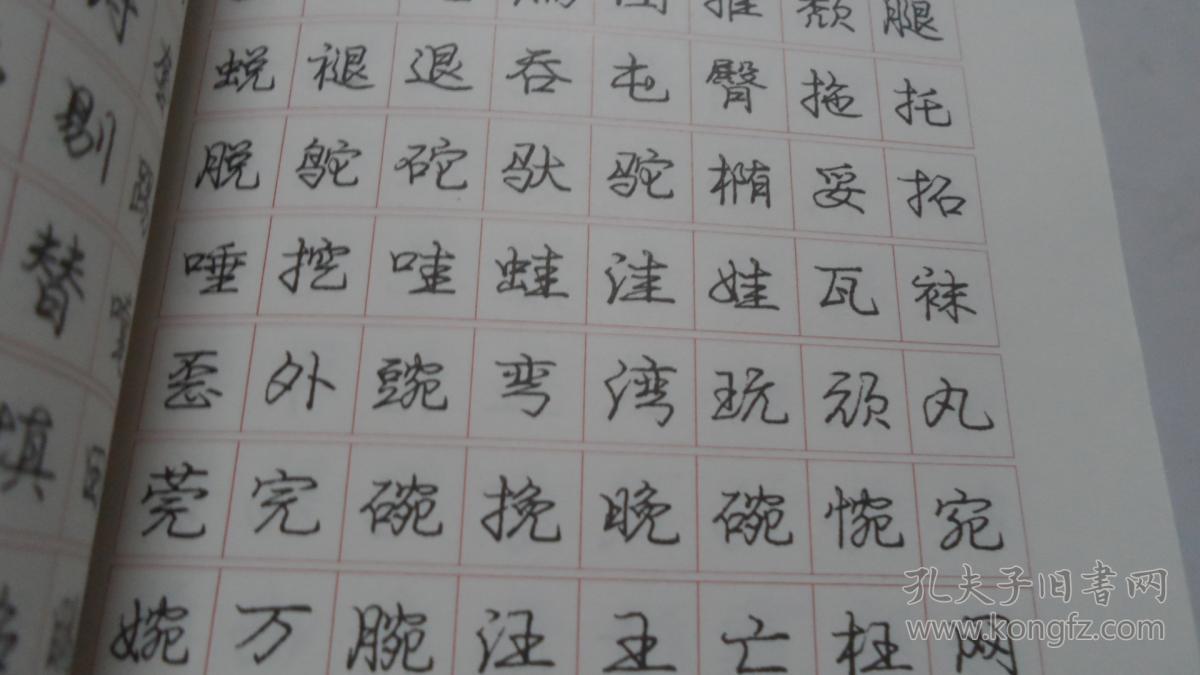 推 颓 腿
蜕 褪 退 吞 屯 臀 拖 托
脱 鸵 砣 驮 驼 椭 妥 拓
唾 挖 哇 蛙 洼 娃 瓦 袜
歪 外 豌 弯 湾 玩 顽 丸
莞 完 碗 挽 晚 碗 惋 宛
婉 万 腕 汪 王 亡 枉 网
剔
替
填
孔夫子旧书网
www.kongfz.com